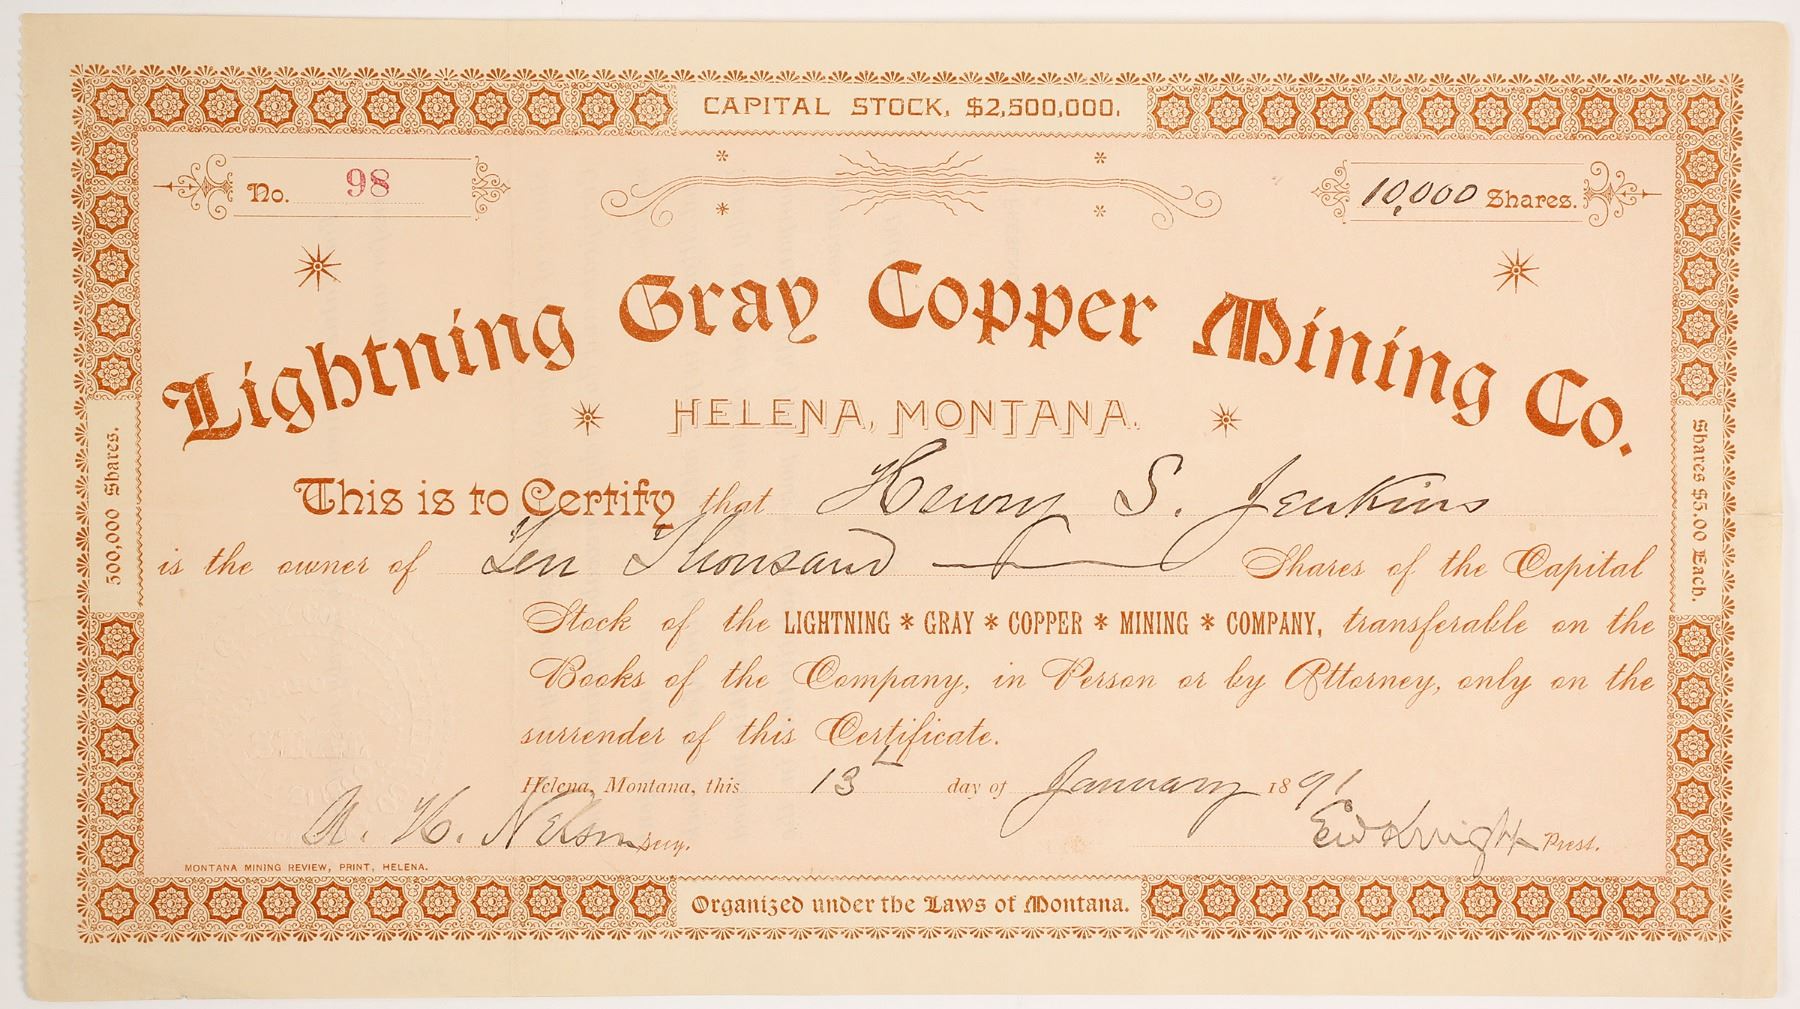 CAPITAL STOCK, $2,500,000.
No. 98
10,000 Shares.
Lightning Gray Copper Mining Co.
HELENA, MONTANA.
500,000 Shares.
Shares $5.00 Each.
This is to Certify that Henry S. Jenkins
is the owner of Ten Thousand Shares of the Capital
Stock of the LIGHTNING * GRAY * COPPER * MINING * COMPANY, transferable on the
Books of the Company, in Person or by Attorney, only on the
surrender of this Certificate.
Helena, Montana, this 13th day of January 1891
H. Nelson Secy.
Knight Prest.
MONTANA MINING REVIEW, PRINT, HELENA.
Organized under the Laws of Montana.